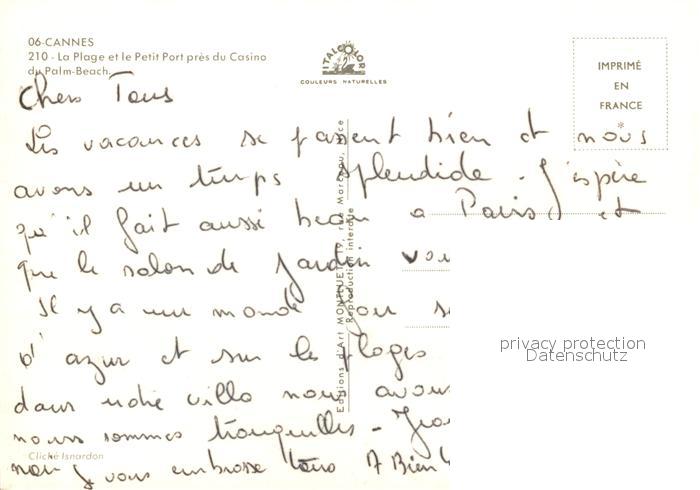 06-CANNES
210 - La Plage et le Petit Port près du Casino
du Palm-Beach.
ITALCOLOR
COULEURS NATURELLES
IMPRIMÉ
EN
FRANCE
*
Chers Tous
Les vacances se passent bien et nous
avons un temps splendide. J'espère
qu'il fait aussi beau a Paris et
que le salon de Jardin
Il y a un monde fou
d'azur et sur les plages
dans notre villa nous avons
nous sommes tranquilles -
vous embrasse tous A Bient
Editions d'Art rue Marceau, Nice
Reproduction interdite
Cliché Isnardon
privacy protection
Datenschutz